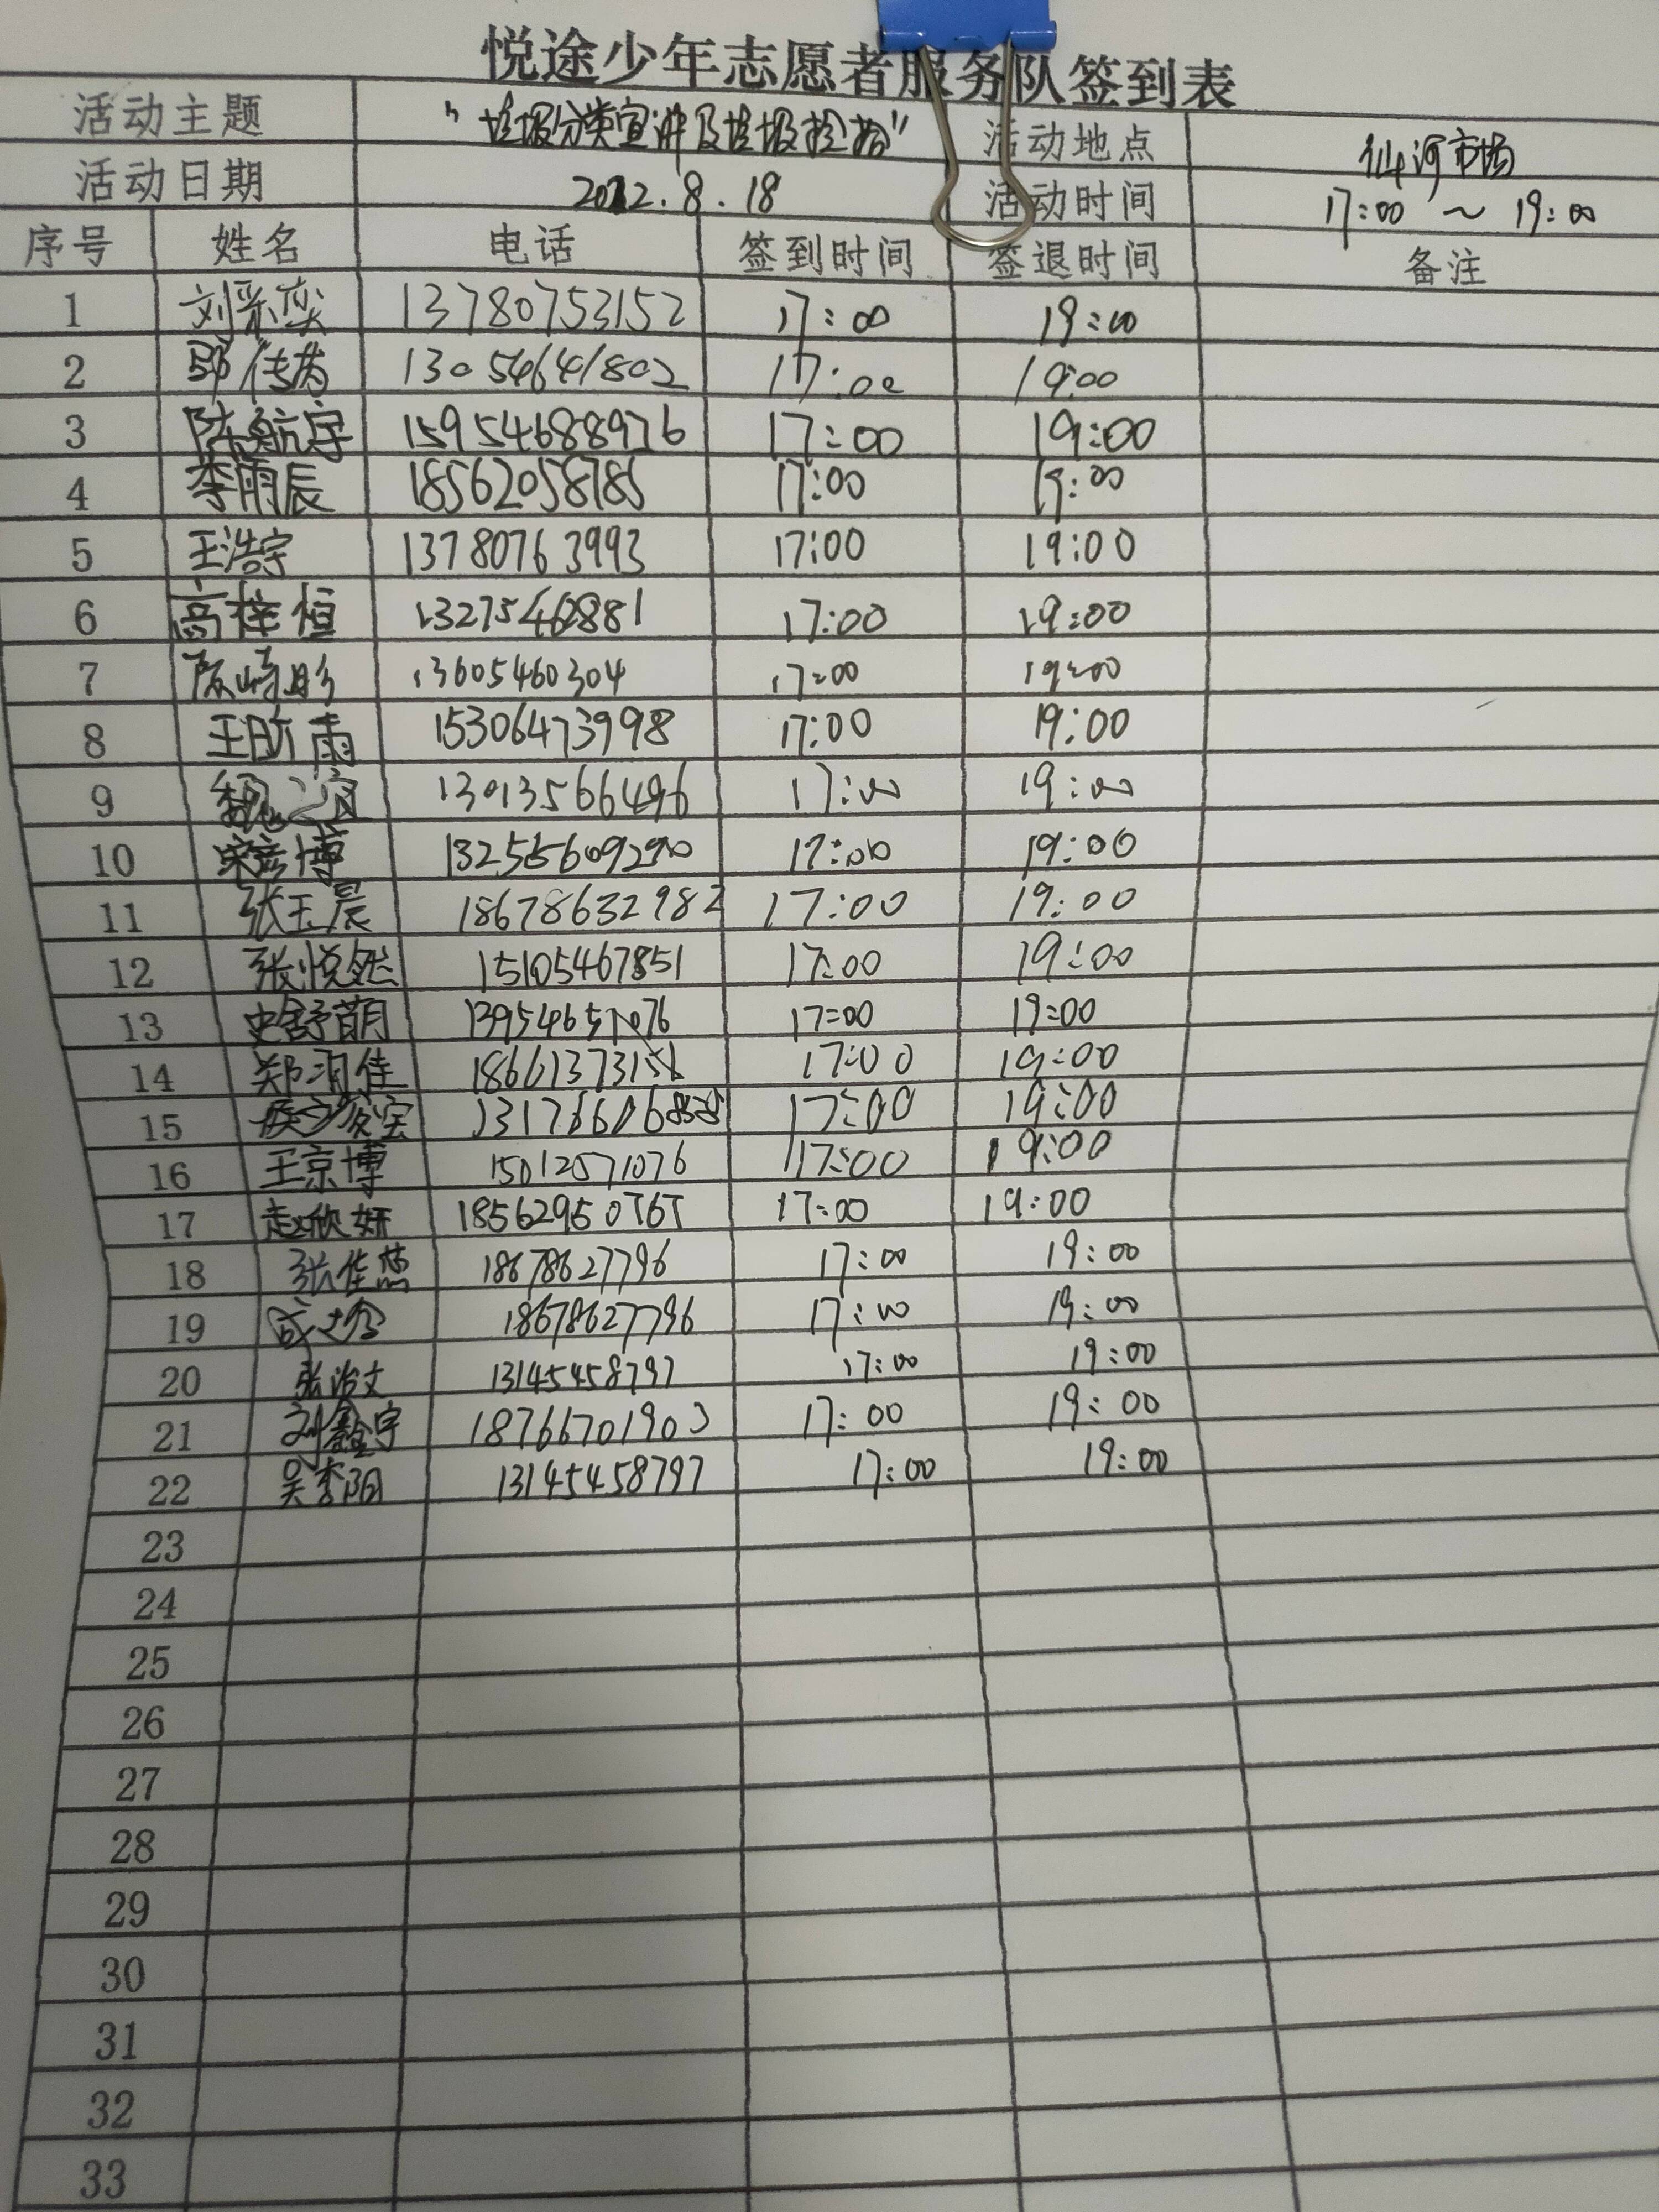 悦途少年志愿者服务队签到表
活动主题 "垃圾分类宣讲及垃圾捡拾" 活动地点 仙河市场
活动日期 2022.8.18 活动时间 17:00 ~ 19:00
序号 姓名 电话 签到时间 签退时间 备注
1 刘采奕 13780753152 17:00 19:00
2 13054641802 17:00 19:00
3 陈航宇 15954688976 17:00 19:00
4 李雨辰 18562058785 17:00 19:00
5 王浩宇 13780763993 17:00 19:00
6 高梓恒 13275462881 17:00 19:00
7 13605460304 17:00 19:00
8 王昕雨 15306473998 17:00 19:00
9 13013566496 17:00 19:00
10 宋彦博 17:00 19:00
11 张玉晨 18678632982 17:00 19:00
12 张悦然 15105467851 17:00 19:00
13 史舒萌 13954657076 17:00 19:00
14 郑润佳 18661373156 17:00 19:00
15 17:00 19:00
16 王京博 15012571076 17:00 19:00
17 赵欣妍 18562950767 17:00 19:00
18 张佳蕊 18678627796 17:00 19:00
19 18678627796 17:00 19:00
20 张洽文 13145458797 17:00 19:00
21 刘鑫宇 18766701903 17:00 19:00
22 吴李阳 13145458797 17:00 19:00
23
24
25
26
27
28
29
30
31
32
33